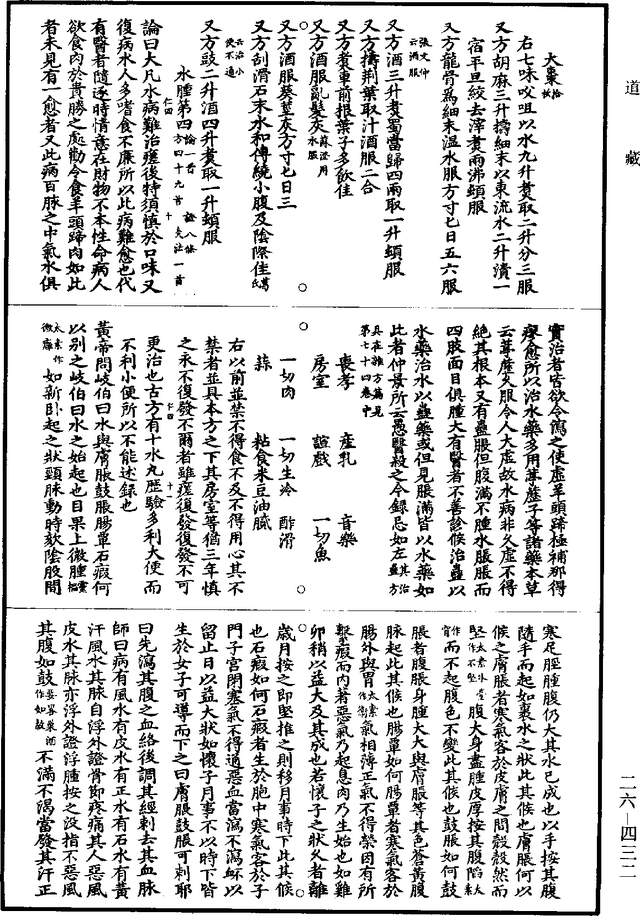 道藏
大棗拾枚
右七味㕮咀以水九升煮取二升分三服
又方胡麻三升擣細末以東流水二升漬一
宿平旦絞去滓煮兩沸頓服
又方龍骨爲細末温水服方寸匕日五六服
張文仲云酒服
又方酒三升煮蜀當歸四兩取一升頓服
又方擣荆葉取汁酒服二合
又方煮車前根葉子多飲佳
又方酒服亂髮灰蘇澄用水服
又方酒服葵莖灰方寸匕日三
又方刮滑石末水和傅繞小腹及陰際佳葛氏云治小便不通
又方豉二升酒四升煮取一升頓服
水腫第四論一首證八條方四十九首十灸法一首
論曰大凡水病難治瘥後特須慎於口味又
復病水人多嗜食不廉所以此病難愈也代
有醫者隨逐時情意在財物不本性命病人
欲食肉於貴勝之處勸令食羊頭蹄肉如此
者未見有一愈者又此病百脉之中氣水俱
實治者皆欲令瀉之使虚羊頭蹄極補那得
瘳愈所以治水藥多用葶藶子等諸藥本草
云葶藶久服令人大虚故水病非久虚不得
絶其根本又有蠱脹但腹滿不腫水脹脹而
四肢面目俱腫大有醫者不善診候治蠱以
水藥治水以蠱藥或但見脹滿皆以水藥如
此者仲景所云愚醫殺之今録忌如左蠱方其治具在雜方篇見第七十四卷中
喪孝　産乳　音樂
房室　諠戲　一切魚
一切肉　一切生冷　酢滑
蒜　粘食米豆油膩
右以前並禁不得食不及不得用心其不
禁者並具本方之下其房室等猶三年慎
之永不復發不爾者雖瘥復發復發不可
更治也古方有十水丸歷驗多利大便而
不利小便所以不能述録也
黄帝問岐伯曰水與膚脹鼓脹腸覃石瘕何
以别之岐伯曰水之始起也目果上微腫靈樞太素作微癰如新卧起之狀頸脉動時欬陰股間
寒足脛腫腹仍大其水已成也以手按其腹
隨手而起如裹水之狀此其候也膚脹何以
候之膚脹者寒氣客於皮膚之間殻殻然而
堅太素外臺作不堅腹大身盡腫皮厚按其腹陷太素作窅而不起腹色不變此其候也鼓脹如何鼓
脹者腹脹身腫大大與膚脹等其色蒼黄腹
脉起此其候也腸覃如何腸覃者寒氣客於
腸外與胃太素作衞氣相薄正氣不得榮因有所
繫瘕而内著惡氣乃起息肉乃生始也如雞
卵稍以益大及其成也若懷子之狀久者離
歲月按之即堅推之則移月事時下此其候
也石瘕如何石瘕者生於胞中寒氣客於子
門子宫閉塞氣不得通惡血當瀉不瀉衃以
留止日以益大狀如懷子月事不以時下皆
生於女子可導而下之曰膚脹鼓脹可刺耶
曰先瀉其腹之血絡後調其經刺去其血脉
師曰病有風水有皮水有正水有石水有黄
汗風水其脉自浮外證骨節疼痛其人惡風
皮水其脉亦浮外證浮腫按之没指不惡風
其腹如鼓不滿不渴當發其汗正
二六—四三二